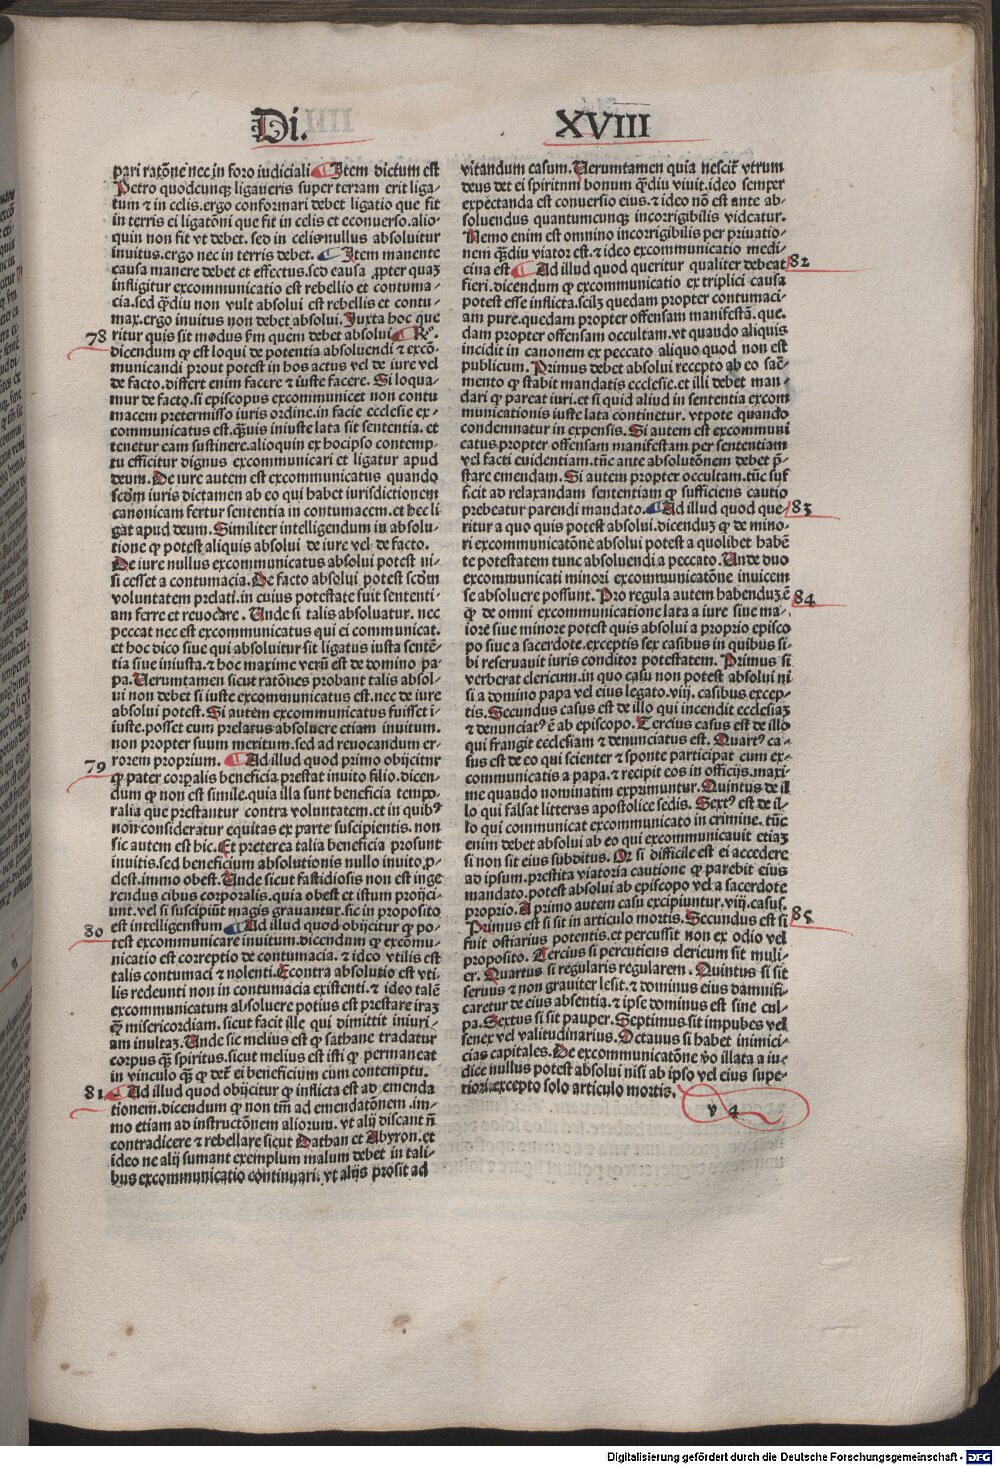 Di. XVIII
pari ratōne nec in foro iudiciali Item dictum est
Petro quodcunqꝫ ligaueris super terram erit liga-
tum ⁊ in celis. ergo conformari debet ligatio que fit
in terris ei ligatōni que fit in celis et econuerso. alio-
quin non fit vt debet. sed in celis nullus absoluitur
inuitus. ergo nec in terris debet. Item manente
causa manere debet et effectus. sed causa ꝓpter quaꝫ
infligitur excommunicatio est rebellio et contuma-
cia. sed q̄ꝫdiu non vult absolui est rebellis et contu-
max. ergo inuitus non debet absolui. Iuxta hoc que
78 ritur quis sit modus ẜm quem debet absolui Rº.
dicendum ꝙ est loqui de potentia absoluendi ⁊ excō-
municandi prout potest in hos actus vel de iure vel
de facto. differt enim facere ⁊ iuste facere. Si loqua-
mur de facto. si episcopus excommunicet non contu
macem pretermisso iuris ordine. in facie ecclesie ex-
communicatus est. q̄ꝫuis iniuste lata sit sententia. et
tenetur eam sustinere. alioquin ex hocipso contemp-
tu efficitur dignus excommunicari et ligatur apud
deum. De iure autem est excommunicatus quando
scd̄m iuris dictamen ab eo qui habet iurisdictionem
canonicam fertur sententia in contumacem. et hec li
gat apud deum. Similiter intelligendum in absolu-
tione ꝙ potest aliquis absolui de iure vel de facto.
De iure nullus excommunicatus absolui potest ni-
si cesset a contumacia. De facto absolui potest scd̄m
voluntatem prelati. in cuius potestate fuit sententi-
am ferre et reuocare. Unde si talis absoluatur. nec
peccat nec est excommunicatus qui ei communicat.
et hoc dico siue qui absoluitur sit ligatus iusta sentē-
tia siue iniusta. ⁊ hoc maxime verū est de domino pa-
pa. Uerumtamen sicut ratōnes probant talis absol-
ui non debet si iuste excommunicatus est. nec de iure
absolui potest. Si autem excommunicatus fuisset i-
iuste. posset eum prelatus absoluere etiam inuitum.
non propter suum meritum. sed ad reuocandum er-
79 rorem proprium. Ad illud quod primo obijcitur
ꝙ pater corꝑalis beneficia prestat inuito filio. dicen-
dum ꝙ non est simile. quia illa sunt beneficia tempo-
ralia que prestantur contra voluntatem. et in quibꝰ
non consideratur equitas ex parte suscipientis. non
sic autem est hic. Et preterea talia beneficia prosunt
inuitis. sed beneficium absolutionis nullo inuito ꝓ-
dest. immo obest. Unde sicut fastidiosis non est inge
rendus cibus corporalis. quia obest et istum proijci-
unt. vel si suscipiūt magis grauantur. sic in proposito
80 est intelligendum Ad illud quod obijcitur ꝙ po-
test excommunicare inuitum. dicendum ꝙ excōmu-
nicatio est correptio de contumacia. ⁊ ideo vtilis est
talis contumaci ⁊ nolenti. Econtra absolutio est vti-
lis redeunti non in contumacia existenti. ⁊ ideo talē
excommunicatum absoluere potius est prestare iraꝫ
q̄ꝫ misericordiam. sicut facit ille qui dimittit iniuri-
am inultaꝫ. Unde sic melius est ꝙ sathane tradatur
corpus q̄ꝫ spiritus. sicut melius est isti ꝙ permaneat
in vinculo q̄ꝫ ꝙ det̄ ei beneficium cum contemptu.
81 Ad illud quod obijcitur ꝙ inflicta est ad emenda
tionem. dicendum ꝙ non tm̄ ad emendatōnem. im-
mo etiam ad instructōnem aliorum. vt alij discant n̄
contradicere ⁊ rebellare sicut Dathan et Abyron. et
ideo ne alij sumant exemplum malum debet in tali-
bus excommunicatio continuari. vt alijs prosit ad
vitandum casum. Uerumtamen quia nescit̄ vtrum
deus det ei spiritum bonum q̄ꝫdiu viuit. ideo semper
expectanda est conuersio eius. ⁊ ideo nō est ante ab-
soluendus quantumcunqꝫ incorrigibilis videatur.
Nemo enim est omnino incorrigibilis per priuatio-
nem q̄ꝫdiu viator est. ⁊ ideo excommunicatio medi-
cina est Ad illud quod queritur qualiter debeat 82
fieri. dicendum ꝙ excommunicatio ex triplici causa
potest esse inflicta. scilꝫ quedam propter contumaci-
am pure. quedam propter offensam manifestā. que.
dam propter offensam occultam. vt quando aliquis
incidit in canonem ex peccato aliquo quod non est
publicum. Primus debet absolui recepto ab eo sacr̄-
mento ꝙ stabit mandatis ecclesie. et illi debet man-
dari ꝙ pareat iuri. et si quid aliud in sententia excom
municationis iuste lata continetur. vtpote quando
condemnatur in expensis. Si autem est excommuni
catus propter offensam manifestam per sententiam
vel facti euidentiam. tūc ante absolutōnem debet p̄-
stare emendam. Si autem propter occultam. tūc suf
ficit ad relaxandam sententiam ꝙ sufficiens cautio
prebeatur parendi mandato. Ad illud quod que- 83
ritur a quo quis potest absolui. dicenduꝫ ꝙ de mino-
ri excommunicatōne absolui potest a quolibet habē
te potestatem tunc absoluendi a peccato. Unde duo
excommunicati minori excommunicatōne inuicem
se absoluere possunt. Pro regula autem habenduꝫ ē 84
ꝙ de omni excommunicatione lata a iure siue ma-
iore siue minore potest quis absolui a proprio episco
po siue a sacerdote. exceptis sex casibus in quibus si-
bi reseruauit iuris conditor potestatem. Primus si
verberat clericum. in quo casu non potest absolui ni
si a domino papa vel eius legato. viij. casibus excep-
tis. Secundus casus est de illo qui incendit ecclesiaꝫ
⁊ denunciatꝰ ē ab episcopo. Tercius casus est de illo
qui frangit ecclesiam ⁊ denunciatus est. Quartꝰ ca-
sus est de eo qui scienter ⁊ sponte participat cum ex-
communicatis a papa. ⁊ recipit eos in officijs. maxi-
me quando nominatim exprimuntur. Quintus de il
lo qui falsat litteras apostolice sedis. Sextꝰ est de il-
lo qui communicat excommunicato in crimine. tūc
enim debet absolui ab eo qui excommunicauit etiaꝫ
si non sit eius subditus. Qr̄ si difficile est ei accedere
ad ipsum. prestita viatoria cautione ꝙ parebit eius
mandato. potest absolui ab episcopo vel a sacerdote
proprio. A primo autem casu excipiuntur. viij. casus.
Primus est si sit in articulo mortis. Secundus est si 85
fuit ostiarius potentis. et percussit non ex odio vel
proposito. Tercius si percutiens clericum sit muli-
er. Quartus si regularis regularem. Quintus si sit
seruus ⁊ non grauiter lesit. ⁊ dominus eius damnifi-
caretur de eius absentia. ⁊ ipse dominus est sine cul-
pa. Sextus si sit pauper. Septimus. sit impubes vel
senex vel valitudinarius. Octauus si habet inimici-
cias capitales. De excommunicatōne v̄o illata a iu-
dice nullus potest absolui nisi ab ipso vel eius supe-
riori. excepto solo articulo mortis.
v 4
Digitalisierung gefördert durch die Deutsche Forschungsgemeinschaft - DFG